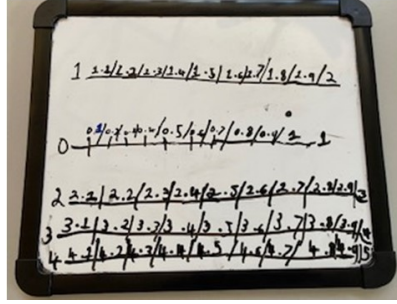 1 1.1/1.2/1.3/1.4/1.5/1.6/1.7/1.8/1.9/2
0 0.1/0.2/0.3/0.4/0.5/0.6/0.7/0.8/0.9/1 1
2 2.1/2.2/2.3/2.4/2.5/2.6/2.7/2.8/2.9/3
3 3.1/3.2/3.3/3.4/3.5/3.6/3.7/3.8/3.9/4
4 4.1/4.2/4.3/4.4/4.5/4.6/4.7/4.8/4.9/5